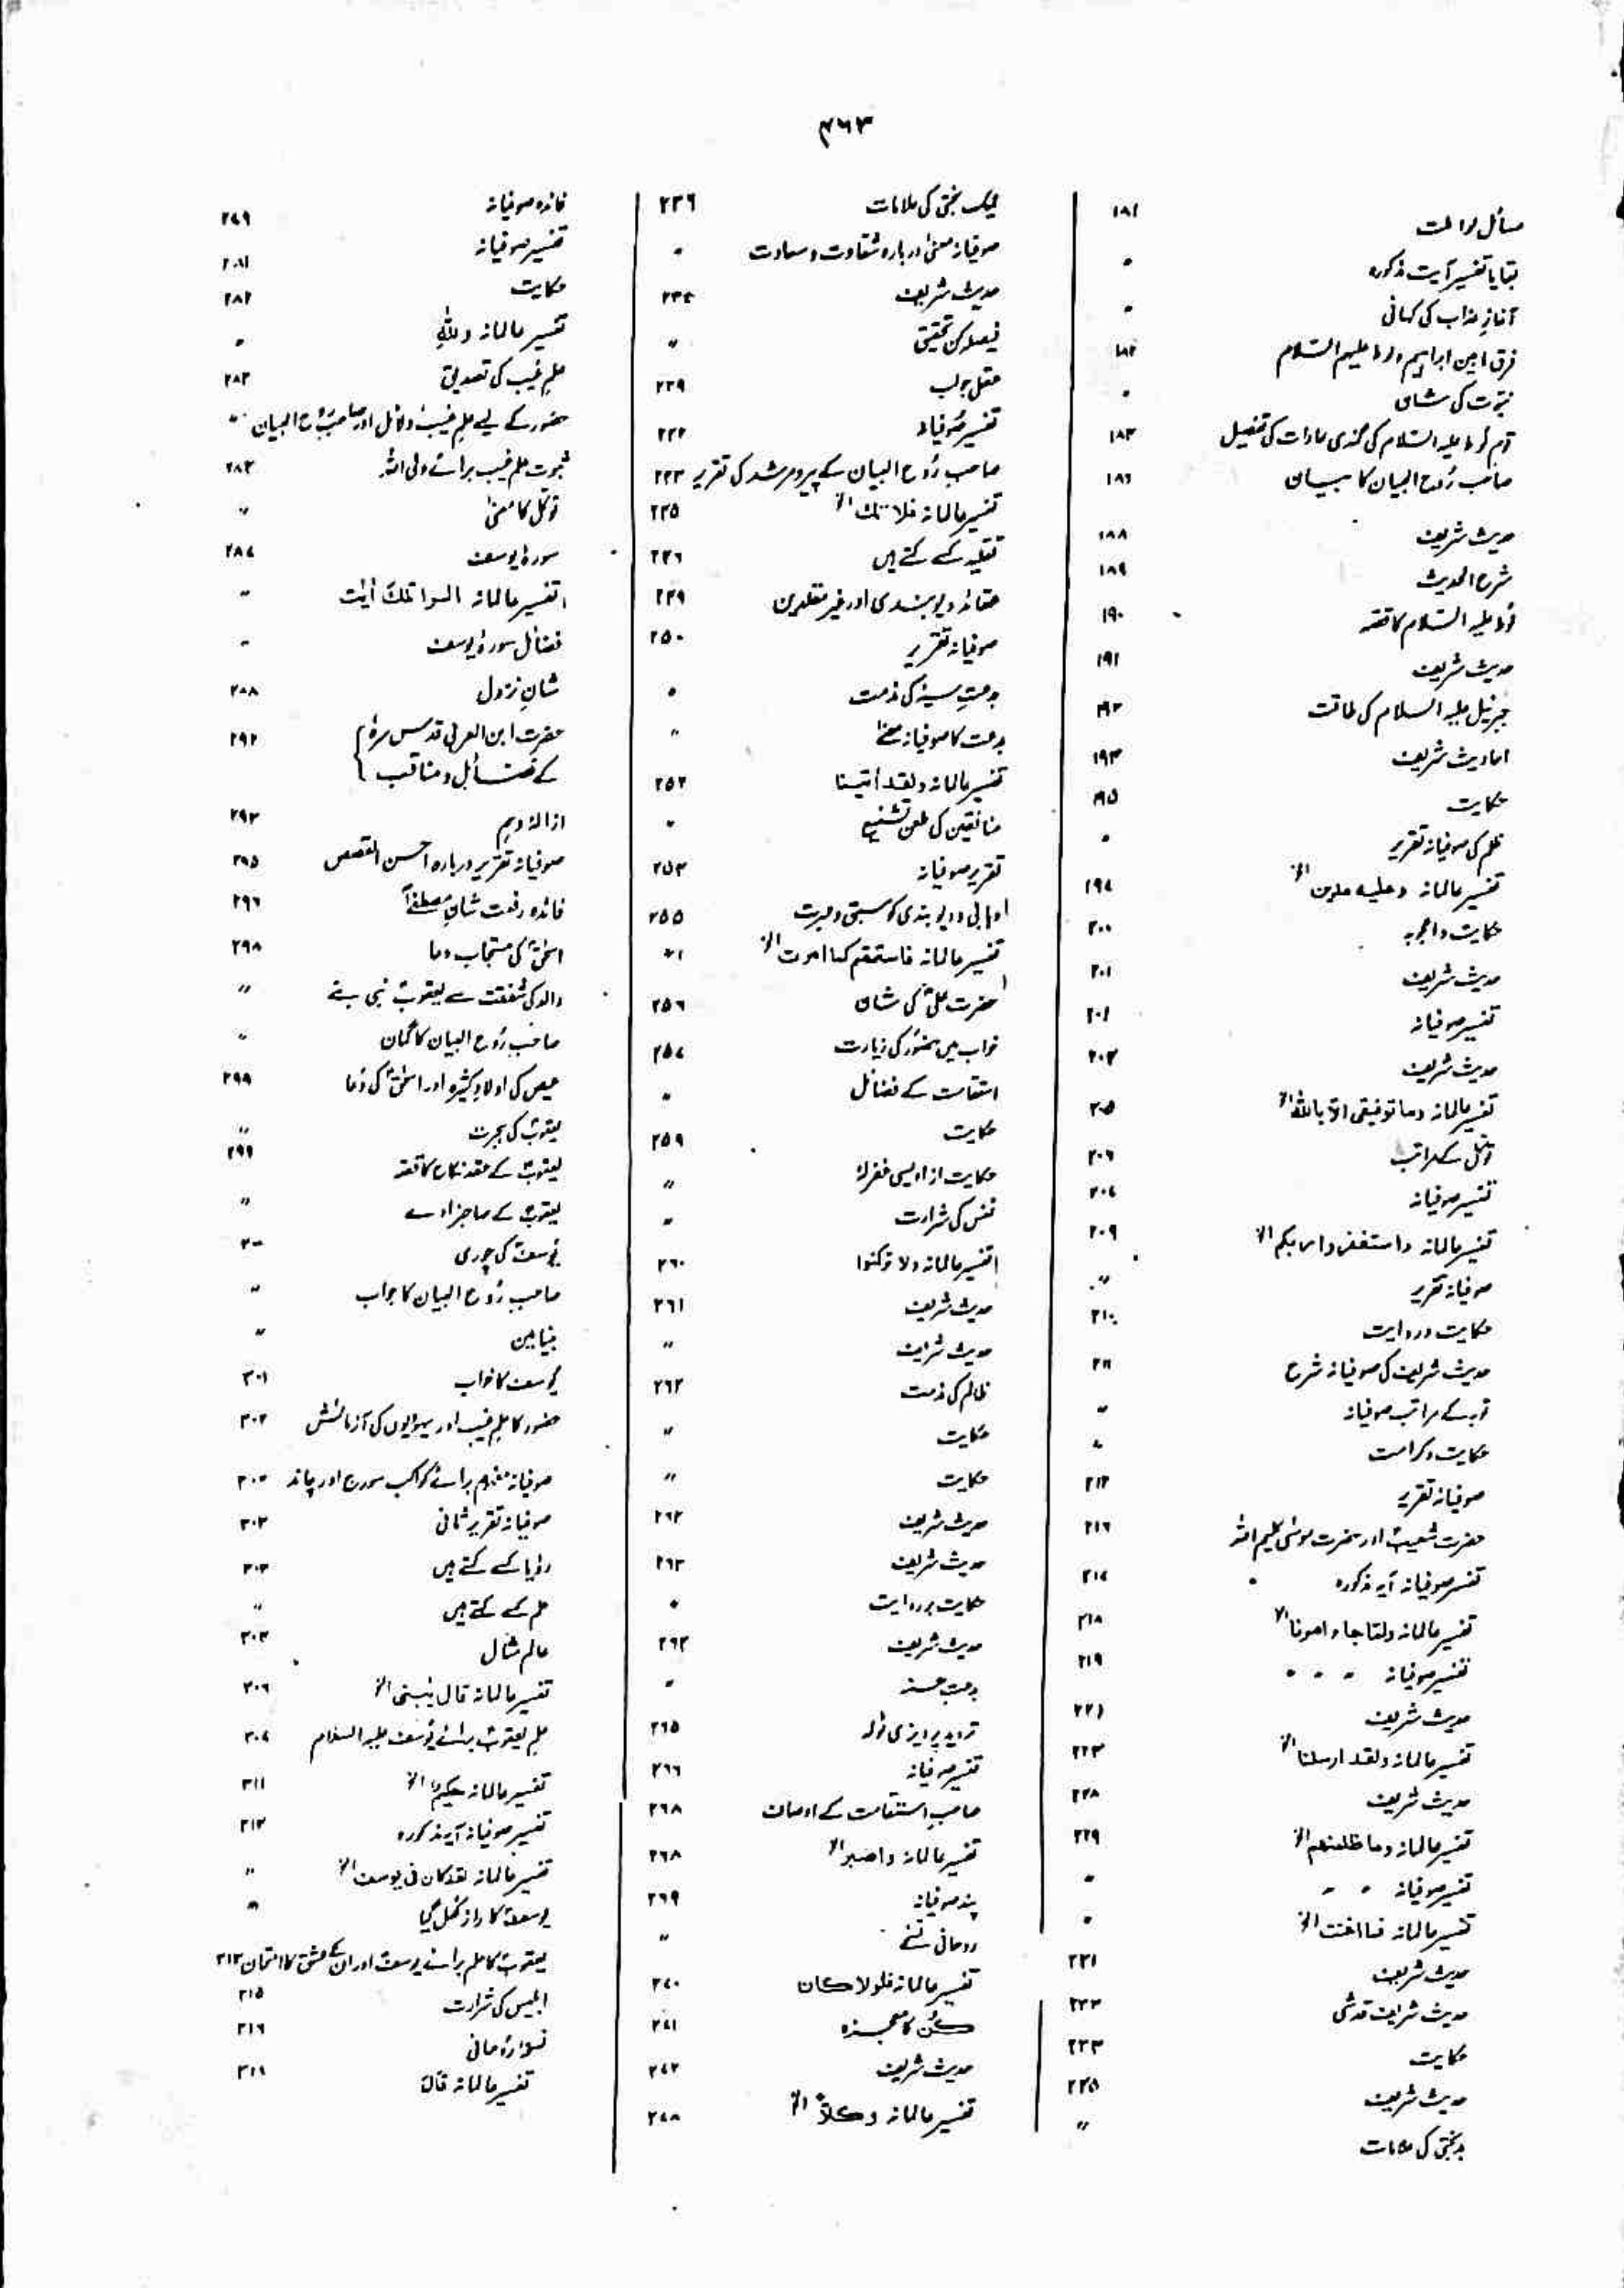 ۴۶۳
مسائل لواطت ۱۸۱
بقایا تفسیر آیت مذکورہ "
آغازِ عذاب کی کہانی "
فرق مابین ابراہیم و لوط علیہم السلام ۱۸۲
نبوّت کی شان "
قوم لُوط علیہ السّلام کی گندی عادات کی تفصیل ۱۸۳
صاحب رُوح البیان کا بیان ۱۸۶
حدیث شریف ۱۸۸
شرح الحدیث ۱۸۹
لُوط علیہ السّلام کا قصّہ ۱۹۰
حدیث شریف ۱۹۱
جبرئیل علیہ السلام کی طاقت ۱۹۲
احادیث شریف ۱۹۳
حکایت ۱۹۵
ظلم کی صوفیانہ تقریر "
تفسیر عالمانہ و الیٰ مدین الخ ۱۹۷
حکایت و اعجوبہ ۲۰۰
حدیث شریف ۲۰۱
تفسیر صوفیانہ ۲۰۱
حدیث شریف ۲۰۳
تفسیر عالمانہ وما توفیقی الّا باللہ الخ ۲۰۵
توکّل کے مراتب ۲۰۶
تفسیر صوفیانہ ۲۰۷
تفسیر عالمانہ واستغفروا ربکم الخ ۲۰۹
صوفیانہ تقریر "
حکایت و روایت ۲۱۰
حدیث شریف کی صوفیانہ شرح ۲۱۱
توبہ کے مراتب صوفیانہ "
حکایت و کرامت "
صوفیانہ تقریر ۲۱۲
حضرت شعیبؑ اور حضرت موسٰی کلیم اللہ ۲۱۶
تفسیر صوفیانہ آیہ مذکورہ ۲۱۷
تفسیر عالمانہ ولمّا جاء امرنا الخ ۲۱۸
تفسیر صوفیانہ " " " ۲۱۹
حدیث شریف ۲۲۱
تفسیر عالمانہ ولقد ارسلنا الخ ۲۲۳
حدیث شریف ۲۲۸
تفسیر عالمانہ وما ظلمنٰهم الخ ۲۲۹
تفسیر صوفیانہ " " "
تفسیر عالمانہ فما اغنت الخ "
حدیث شریف ۲۳۱
حدیث شریف قدسی ۲۳۳
حکایت ۲۳۳
حدیث شریف ۲۳۵
بدبختی کی علامات "
نیک بختی کی علامات ۲۳۶
صوفیانہ معنٰی دربارہ شقاوت و سعادت "
حدیث شریف
فیصلہ کن تحقیق "
عقلی جواب ۲۳۹
تفسیر صُوفیانہ
صاحبِ رُوح البیان کے پیر و مرشد کی تقریر
تفسیر عالمانہ فلا تک الخ ۲۴۵
تقلید کسے کہتے ہیں ۲۴۶
عقائد دیوبندی اور غیر مقلدین ۲۴۹
صوفیانہ تقریر ۲۵۰
بدعتِ سیئہ کی مذمت "
بدعت کا صوفیانہ معنیٰ "
تفسیر عالمانہ ولقد اٰتینا ۲۵۲
منافقین کی طعن و تشنیع "
تقریر صوفیانہ ۲۵۳
وہابی و دیوبندی کو سبق و عبرت ۲۵۵
تفسیر عالمانہ فاستقم کما امرت الخ
حضرت علیؓ کی شان ۲۵۶
خواب میں حضورؐ کی زیارت ۲۵۷
استقامت کے فضائل "
حکایت ۲۵۹
حکایت از اویسی غفرلہ "
نفس کی شرارت "
تفسیر عالمانہ ولا ترکنوا ۲۶۰
حدیث شریف ۲۶۱
حدیث شریف "
ظالم کی مذمت ۲۶۲
حکایت "
حکایت "
حدیث شریف ۲۶۲
حدیث شریف ۲۶۳
حکایت و روایت "
حدیث شریف ۲۶۴
بدعت حسنہ "
تردید پرویزی ٹولہ ۲۶۵
تفسیر صوفیانہ ۲۶۶
صاحبِ استقامت کے اوصاف ۲۶۸
تفسیر عالمانہ واصبر الخ ۲۶۸
پند صوفیانہ ۲۶۹
روحانی نسخے "
تفسیر عالمانہ فلولا کان ۲۷۰
کُن کا معجزہ ۲۷۱
حدیث شریف ۲۷۲
تفسیر عالمانہ وکلاًّ الخ ۲۷۸
فائدہ صوفیانہ ۲۷۹
تفسیر صوفیانہ ۲۸۱
حکایت ۲۸۲
تفسیر عالمانہ وللهِ "
علمِ غیب کی تصدیق ۲۸۳
حضور کے لیے علمِ غیب کے دلائل اور صاحبِ رُوح البیان "
ثبوت علمِ غیب برائے ولی اللہ
توکّل کا معنیٰ "
سورۂ یوسف ۲۸۷
تفسیر عالمانہ الٓرٰ تلک اٰیٰت "
فضائل سورۂ یوسف "
شانِ نزول ۲۸۸
حضرت ابن العربی قدس سرہٗ
کے فضائل و مناقب ۲۹۲
ازالۂ وہم ۲۹۳
صوفیانہ تقریر دربارہ احسن القصص ۲۹۵
فائدہ رفعت شانِ مصطفےٰؐ ۲۹۶
اسحٰقؑ کی مستجاب دعا ۲۹۸
والد کی شفقت سے یعقوبؑ نبی بنے "
صاحبِ رُوح البیان کا گمان "
عیص کی اولادِ کثیرہ اور اسحٰقؑ کی دُعا ۲۹۹
یعقوبؑ کی ہجرت "
یعقوبؑ کے عقد نکاح کا قصّہ ۲۹۹
یعقوبؑ کے صاحبزادے "
یُوسفؑ کی چوری ۳۰۰
صاحبِ رُوح البیان کا جواب "
بنیامین "
یُوسف کا خواب ۳۰۱
حضور کا علمِ غیب اور یہودیوں کی آزمائش ۳۰۲
صوفیانہ مفہوم برائے کواکب سورج اور چاند
صوفیانہ تقریر ثانی ۳۰۳
رؤیا کسے کہتے ہیں ۳۰۳
حلم کسے کہتے ہیں "
عالم مثال
تفسیر عالمانہ قال یٰبنی الخ ۳۰۶
علم یعقوبؑ برائے یُوسف علیہ السلام ۳۰۷
تفسیر عالمانہ حکیم الخ ۳۱۱
تفسیر صوفیانہ آیہ مذکورہ ۳۱۲
تفسیر عالمانہ لقد کان فی یوسف الخ "
یوسفؑ کا راز کُھل گیا "
یعقوبؑ کا علم برائے یوسفؑ اور ان کے عشق کا امتحان ۳۱۳
ابلیس کی شرارت ۳۱۵
نسخۂ روحانی ۳۱۶
تفسیر عالمانہ قال ۳۱۸